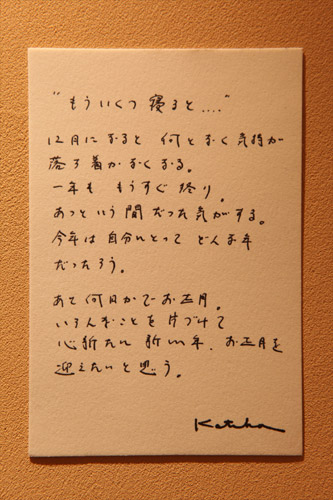 "もういくつ寝ると...."
12月になると 何となく気持が
落ち着かなくなる。
一年も もうすぐ終り。
あっという間だった気がする。
今年は自分にとって どんな年
だったろう。
あと何日かでお正月。
いろんなことを片づけて
心新たに新しい年、お正月を
迎えたいと思う。